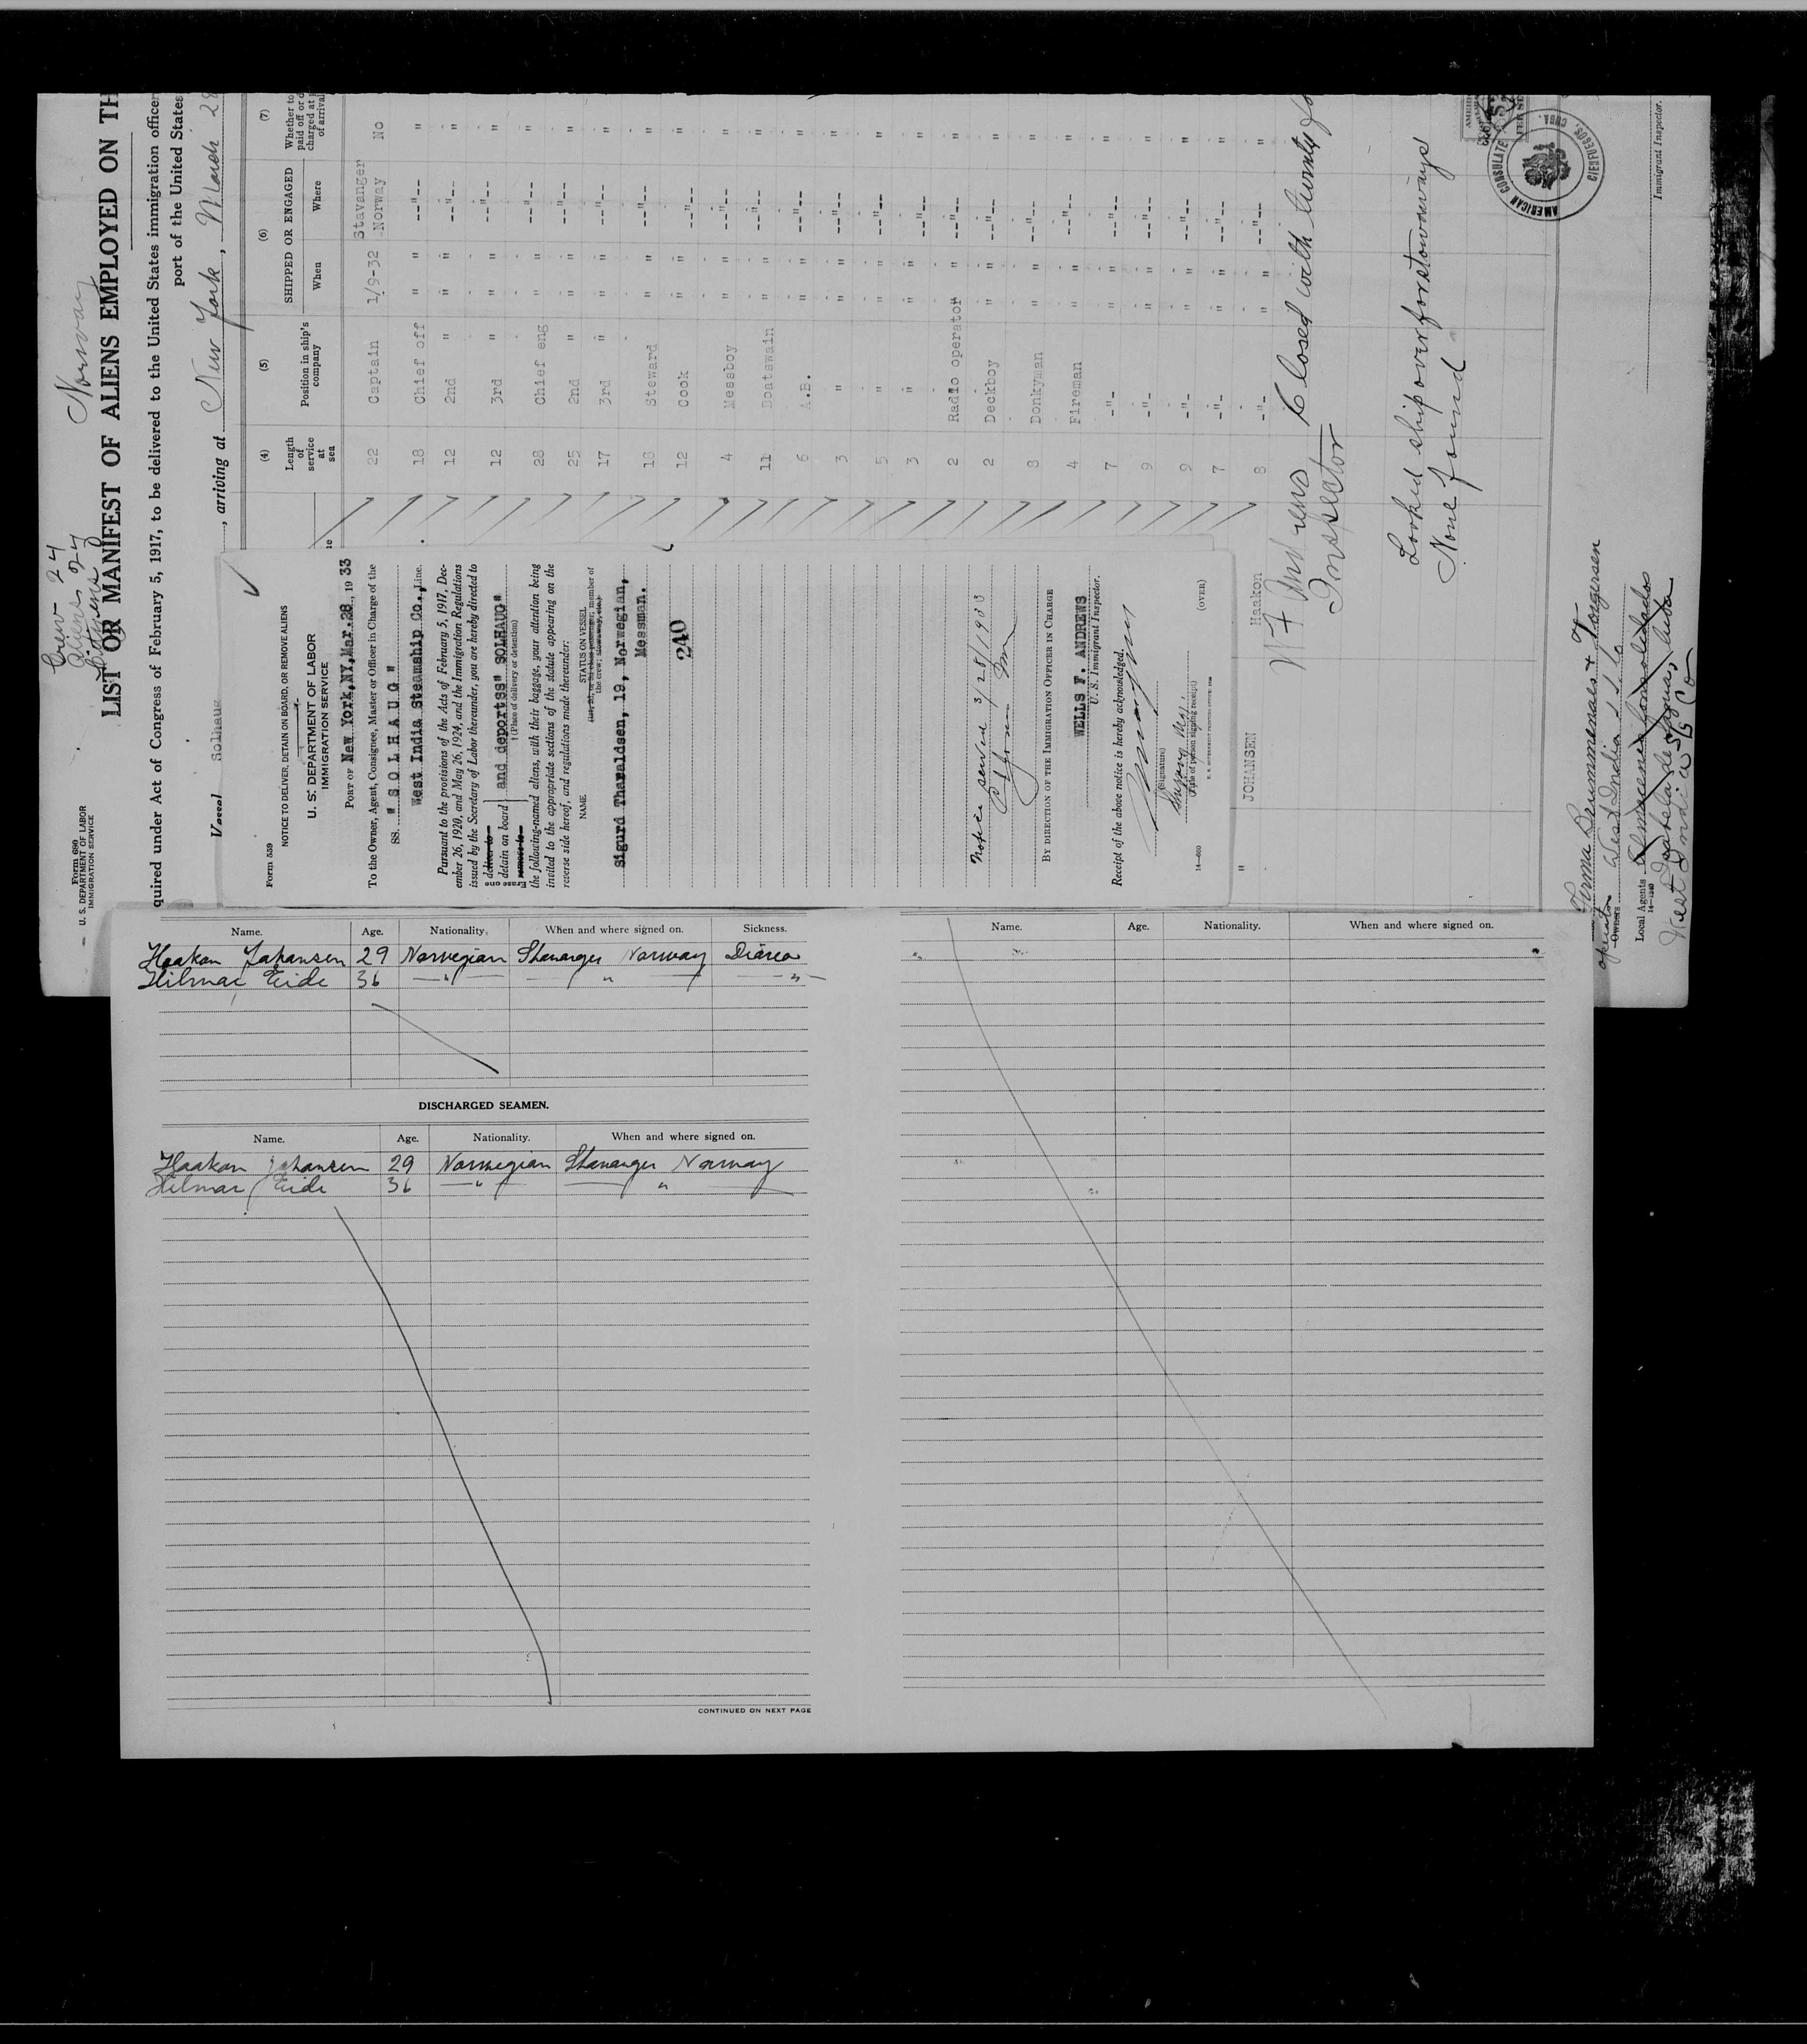 Form 690
U. S. DEPARTMENT OF LABOR
IMMIGRATION SERVICE
Crew 24
Aliens 24
Citizens
Norway
LIST OR MANIFEST OF ALIENS EMPLOYED ON TH
quired under Act of Congress of February 5, 1917, to be delivered to the United States immigration officer
port of the United States
Vessel Solhaug, arriving at New York, March 28
(4) (5) (6) (7)
Length of service at sea
Position in ship's company
SHIPPED OR ENGAGED
When Where
Whether to paid off or d charged at of arrival
22 Captain 1/9-32 Stavanger -Norway No
18 Chief off " " --"-- "
12 2nd " " " --"-- "
12 3rd " " " --"-- "
28 Chief eng " " --"-- "
25 2nd " " " --"-- "
17 3rd " " " --"-- "
18 Steward " " --"-- "
12 Cook " " --"-- "
4 Messboy " " --"-- "
11 Boatswain " " --"-- "
6 A.B. " " --"-- "
3 " " " --"-- "
5 " " " --"-- "
3 " " " --"-- "
2 Radio operator " " --"-- "
2 Deckboy " " --"-- "
8 Donkyman " " --"-- "
4 Fireman " " --"-- "
7 -"- " " --"-- "
9 -"- " " --"-- "
9 -"- " " --"-- "
7 -"- " " --"-- "
" JOHANSEN Haakon 8 -"- " " --"-- "
W F Andrews
Inspector
Closed with twenty fo
Looked ship over for stowaways
None found
AMERICAN CONSULATE
CIENFUEGOS, CUBA.
Immigrant Inspector.
Torgersen
operator
Owners West India S. S. Co
Local Agents
14—1240
West India SS Co
Form 559
NOTICE TO DELIVER, DETAIN ON BOARD, OR REMOVE ALIENS
U. S. DEPARTMENT OF LABOR
IMMIGRATION SERVICE
PORT OF New York,NY,Mar.28, 1933
To the Owner, Agent, Consignee, Master or Officer in Charge of the
SS. " S O L H A U G "
West India Steamship Co., Line.
Pursuant to the provisions of the Acts of February 5, 1917, Dec-
ember 26, 1920, and May 26, 1924, and the Immigration Regulations
issued by the Secretary of Labor thereunder, you are hereby directed to
deliver to
detain on board and deportss" SOLHAUG"
remove to
† (Place of delivery or detention)
the following-named aliens, with their baggage, your attention being
invited to the appropriate sections of the statute appearing on the
reverse side hereof, and regulations made thereunder:
NAME STATUS ON VESSEL
(1st, 2d, or 3d class passenger; member of
the crew; stowaway, etc.)
Sigurd Tharaldsen, 19, Norwegian,
Messman.
240
Notice served 3/28/1933
BY DIRECTION OF THE IMMIGRATION OFFICER IN CHARGE
WELLS F. ANDREWS
U. S. Immigrant Inspector.
Receipt of the above notice is hereby acknowledged.
(Signature)
(Title of person signing receipt)
14—660
(OVER)
Name. Age. Nationality. When and where signed on. Sickness.
Haakon Johansen 29 Norwegian Stavanger Norway Diarea
Hilmar Eide 36 —"— —"— "—
DISCHARGED SEAMEN.
Name. Age. Nationality. When and where signed on.
Haakon Johansen 29 Norwegian Stavanger Norway
Hilmar Eide 36 —"— —"—
CONTINUED ON NEXT PAGE
Name. Age. Nationality. When and where signed on.